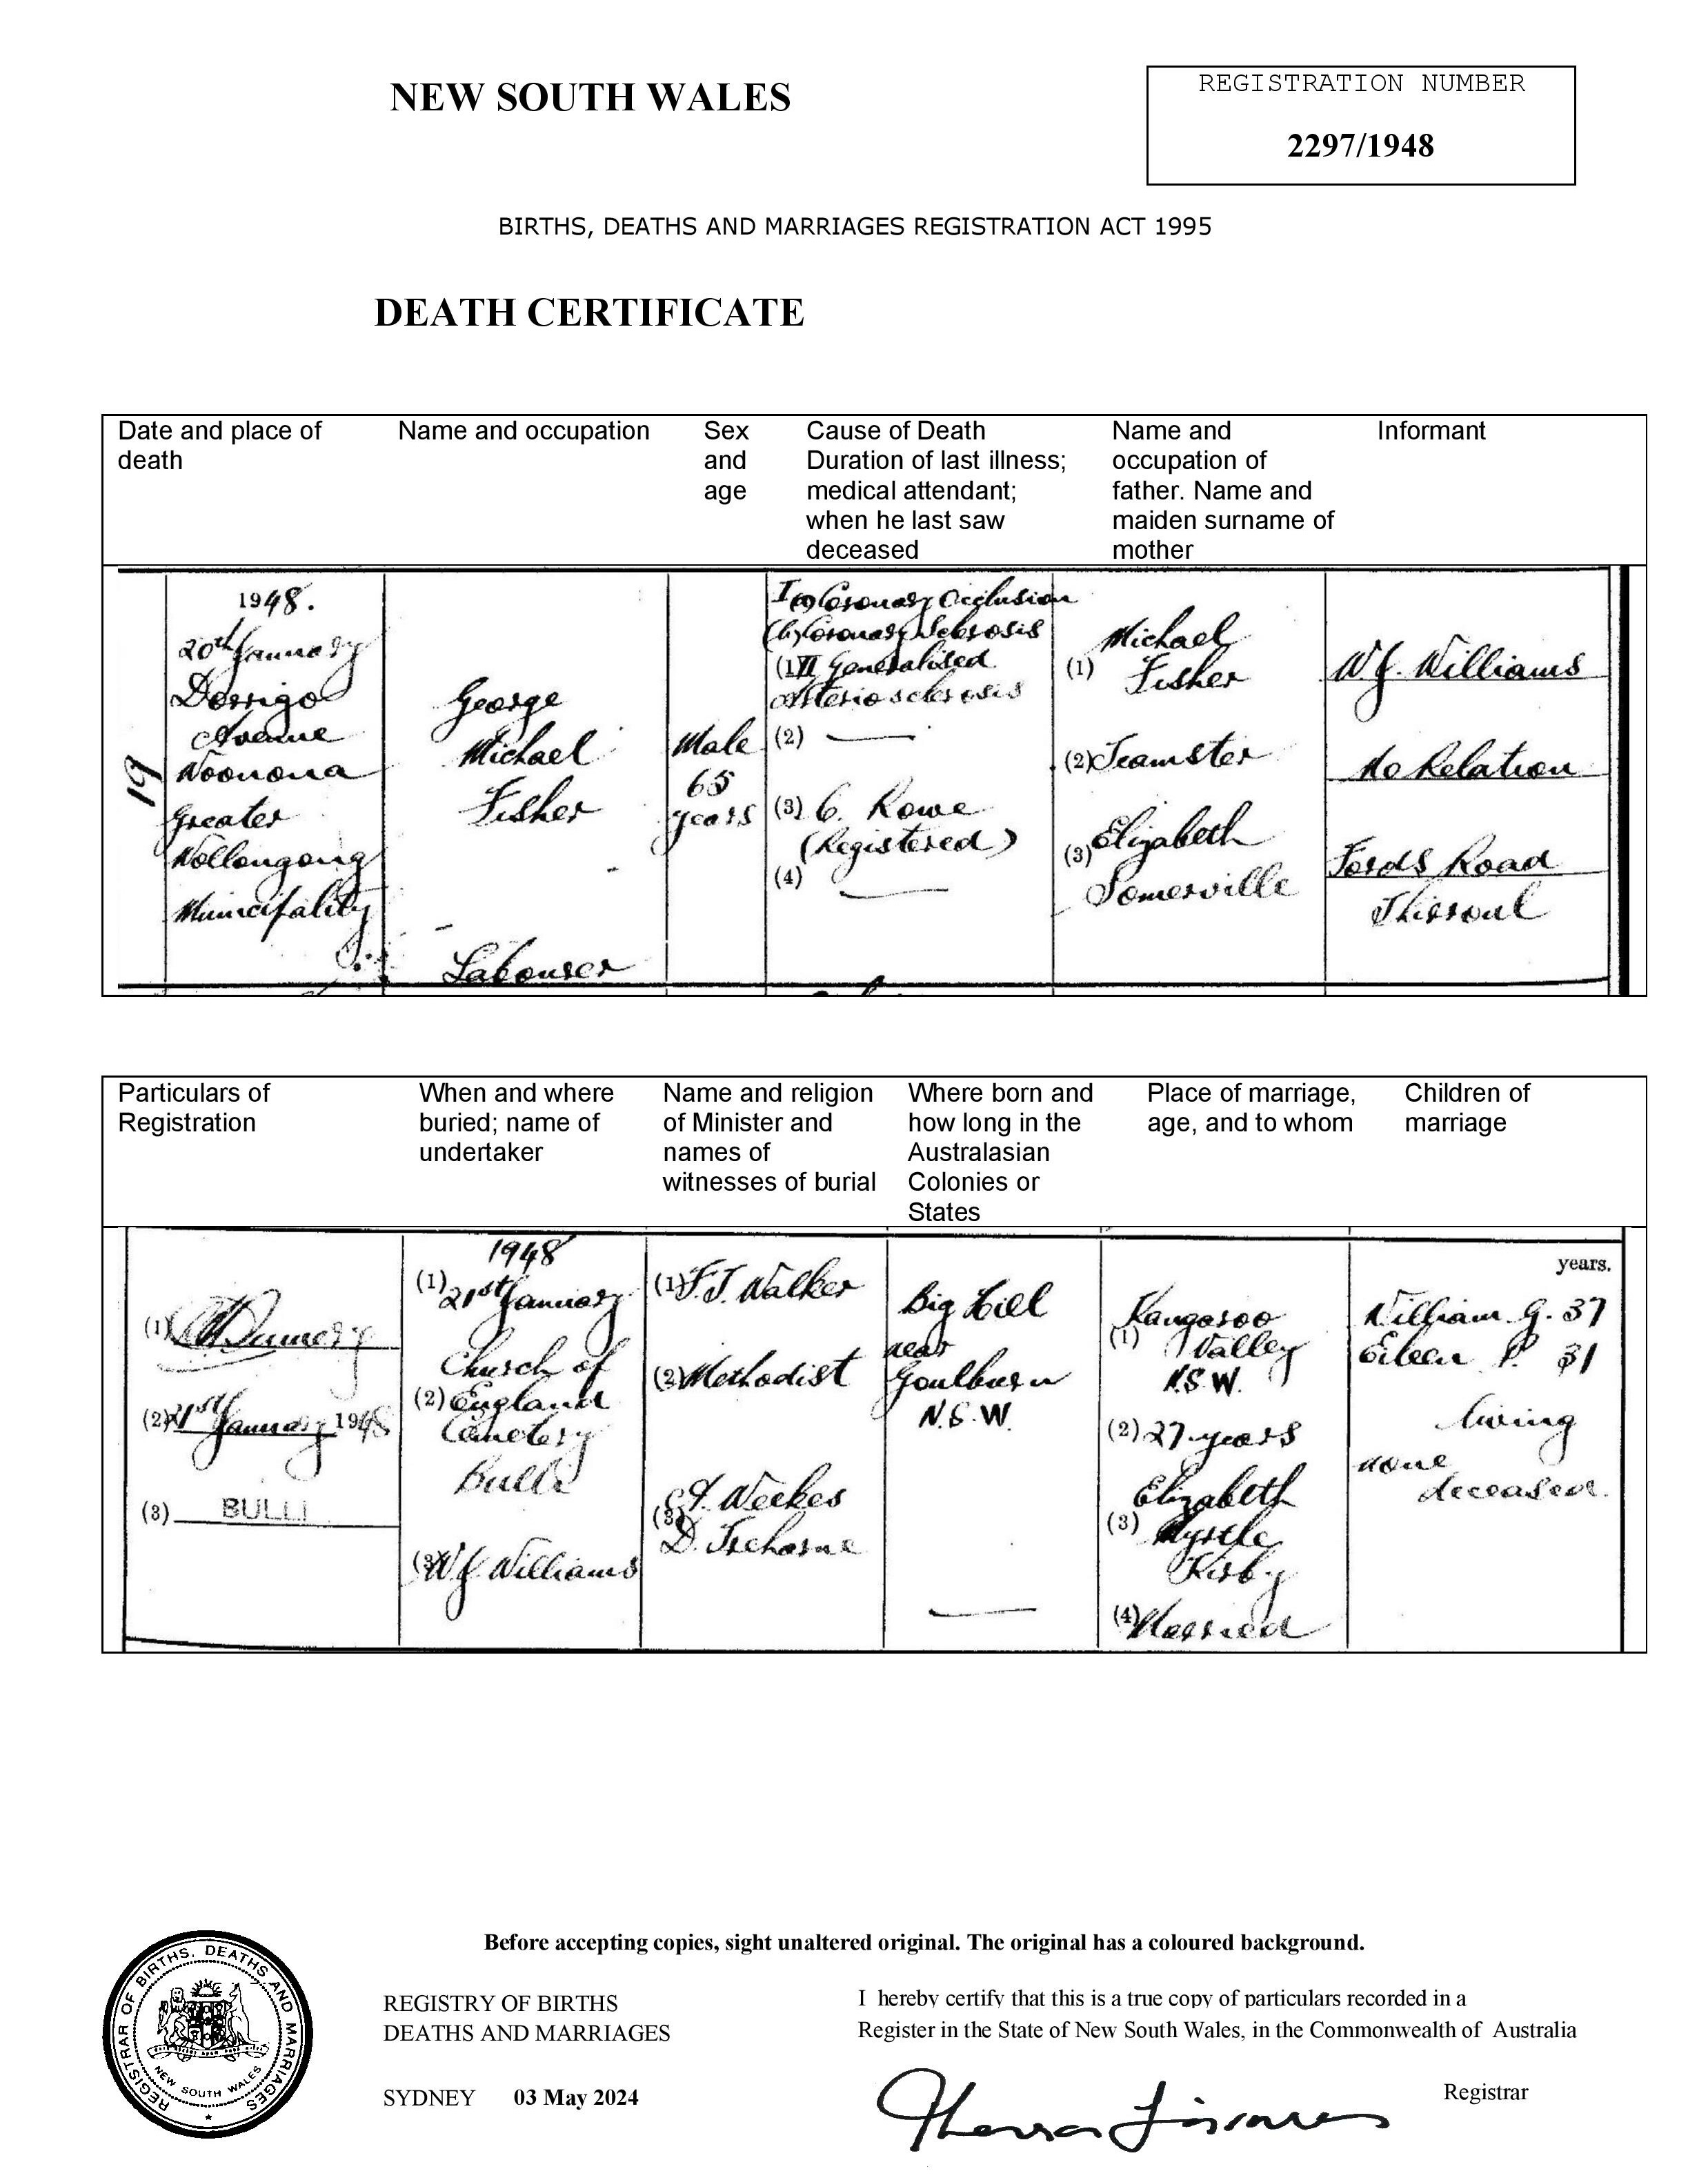 NEW SOUTH WALES
REGISTRATION NUMBER
2297/1948
BIRTHS, DEATHS AND MARRIAGES REGISTRATION ACT 1995
DEATH CERTIFICATE
Date and place of
death
Name and occupation
Sex
and
age
Cause of Death
Duration of last illness;
medical attendant;
when he last saw
deceased
Name and
occupation of
father. Name and
maiden surname of
mother
Informant
19
1948.
20th January
Dorrigo
Avenue
Woonona
Greater
Wollongong
Municipality
George
Michael
Fisher
Labourer
Male
65
years
I (a) Coronary Occlusion
(b) Coronary Sclerosis
(1) II Generalised
Arteriosclerosis
(2)
(3) C. Rowe
(Registered)
(4)
Michael
(1) Fisher
(2) Teamster
(3) Elizabeth
Somerville
W. J. Williams
No Relation
Fords Road
Thirroul
Particulars of
Registration
When and where
buried; name of
undertaker
Name and religion
of Minister and
names of
witnesses of burial
Where born and
how long in the
Australasian
Colonies or
States
Place of marriage,
age, and to whom
Children of
marriage
(1)
(2) 21st January 1948
(3) BULLI
1948
(1) 21st January
Church of
(2) England
Cemetery
Bulli
(3) W. J. Williams
(1) F. J. Walker
(2) Methodist
A. Weekes
(3)
D. Treharne
Big Hill
near
Goulburn
N.S.W.
Kangaroo
(1) Valley
N.S.W.
(2) 27 years
Elizabeth
(3) Myrtle
Kirby
(4) Married
years.
William G. 37
Eileen P. 31
living
none
deceased.
Before accepting copies, sight unaltered original. The original has a coloured background.
REGISTRAR OF BIRTHS, DEATHS AND MARRIAGES
NEW SOUTH WALES
REGISTRY OF BIRTHS
DEATHS AND MARRIAGES
SYDNEY 03 May 2024
I hereby certify that this is a true copy of particulars recorded in a
Register in the State of New South Wales, in the Commonwealth of Australia
Registrar